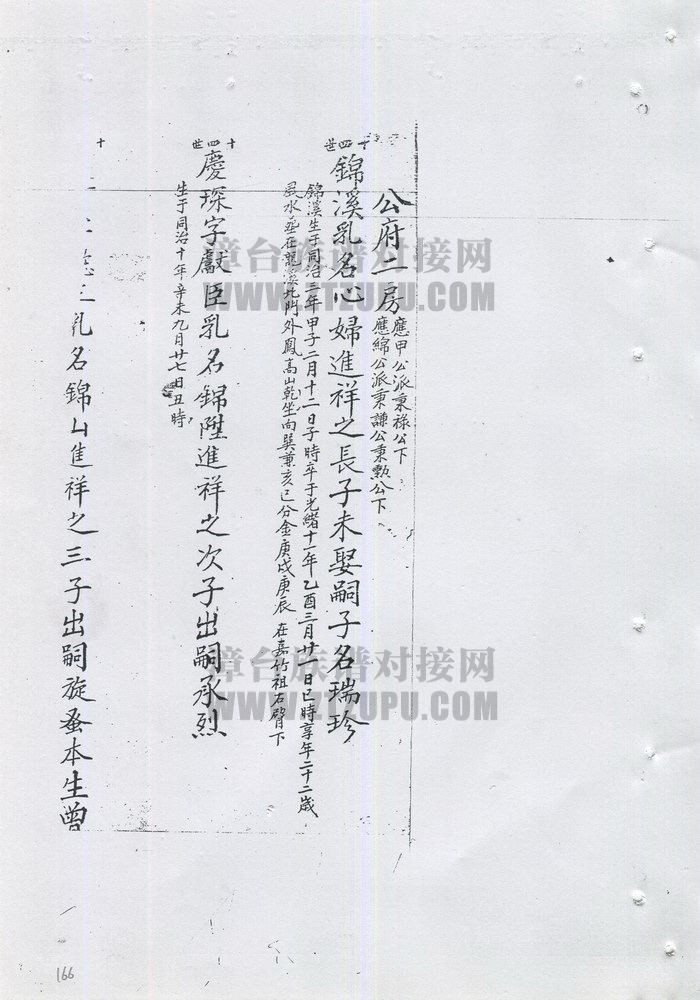 公府二房
應甲公派秉祿公下
應綿公派秉謙公秉勲公下
十四世
錦溪乳名心婦進祥之長子未娶嗣子名瑞珍
錦溪生于同治三年甲子二月十二日子時卒于光緒十一年乙酉三月廿一日巳時享年二十二歲
風水葬在龍溪北門外鳳高山乾坐向巽兼亥巳分金庚戌庚辰 在嘉竹祖右臂下
十四世
慶琛字獻臣乳名錦陞進祥之次子出嗣承烈
生于同治十年辛未九月廿七日丑時
十
乳名錦山進祥之三子出嗣旋蚤本生曾
166
漳台族谱对接网
WWW.ZTZUPU.COM
漳台族谱对接网
WWW.ZTZUPU.COM